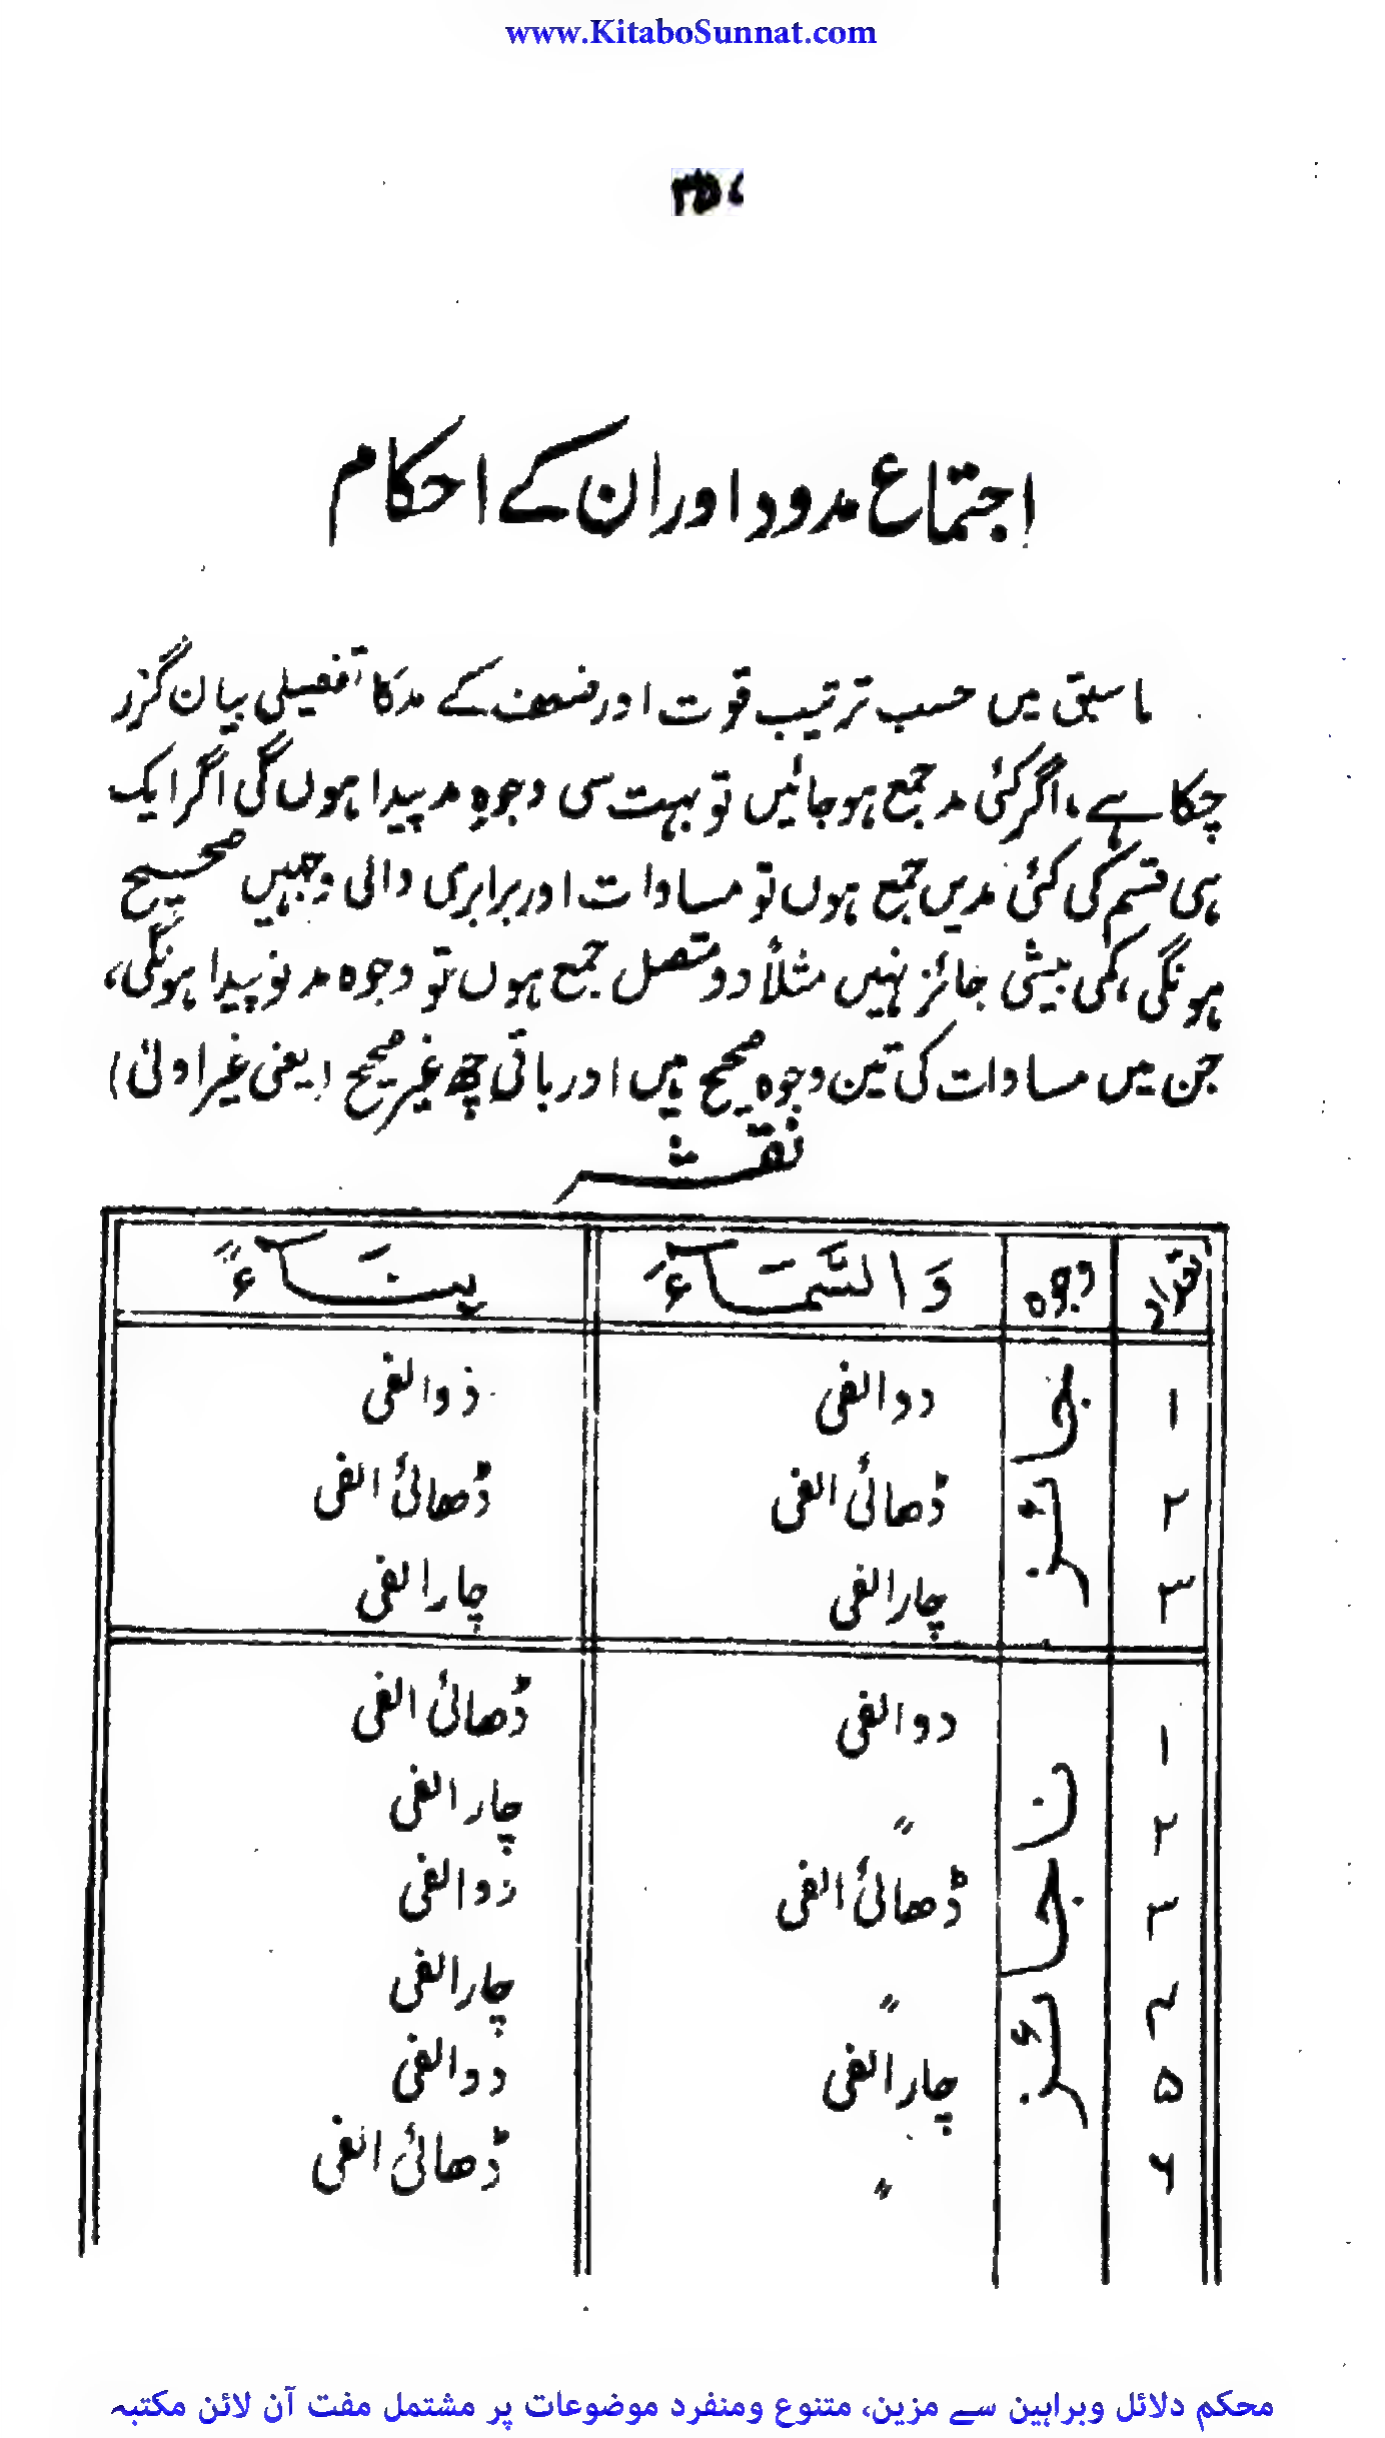 www.KitaboSunnat.com
اجتماع مدود اور ان کے احکام
ماسبق میں حسب ترتیب قوت اور ضعف کے مد کا تفصیلی بیان گزر
چکا ہے، اگر کئی مد جمع ہو جائیں تو بہت سی وجوہِ مد پیدا ہوں گی اگر ایک
ہی قسم کی کئی مدیں جمع ہوں تو مساوات اور برابری والی وجہیں صحیح
ہونگی، کمی بیشی جائز نہیں مثلاً دو متصل جمع ہوں تو وجوہ مد نو پیدا ہونگی،
جن میں مساوات کی تین وجوہ صحیح ہیں اور باقی چھ غیر صحیح (یعنی غیر اولیٰ)
نقشہ
تعداد وجوہ وَالسَّمَآءَ بِنَآءً
۱ جائز دو الفی دو الفی
۲ ڈھائی الفی ڈھائی الفی
۳ چار الفی چار الفی
۱ ناجائز دو الفی ڈھائی الفی
۲〃 چار الفی
۳ ڈھائی الفی دو الفی
۴ 〃 چار الفی
۵ چار الفی دو الفی
۶ 〃 ڈھائی الفی
محکم دلائل وبراہین سے مزین، متنوع ومنفرد موضوعات پر مشتمل مفت آن لائن مکتبہ